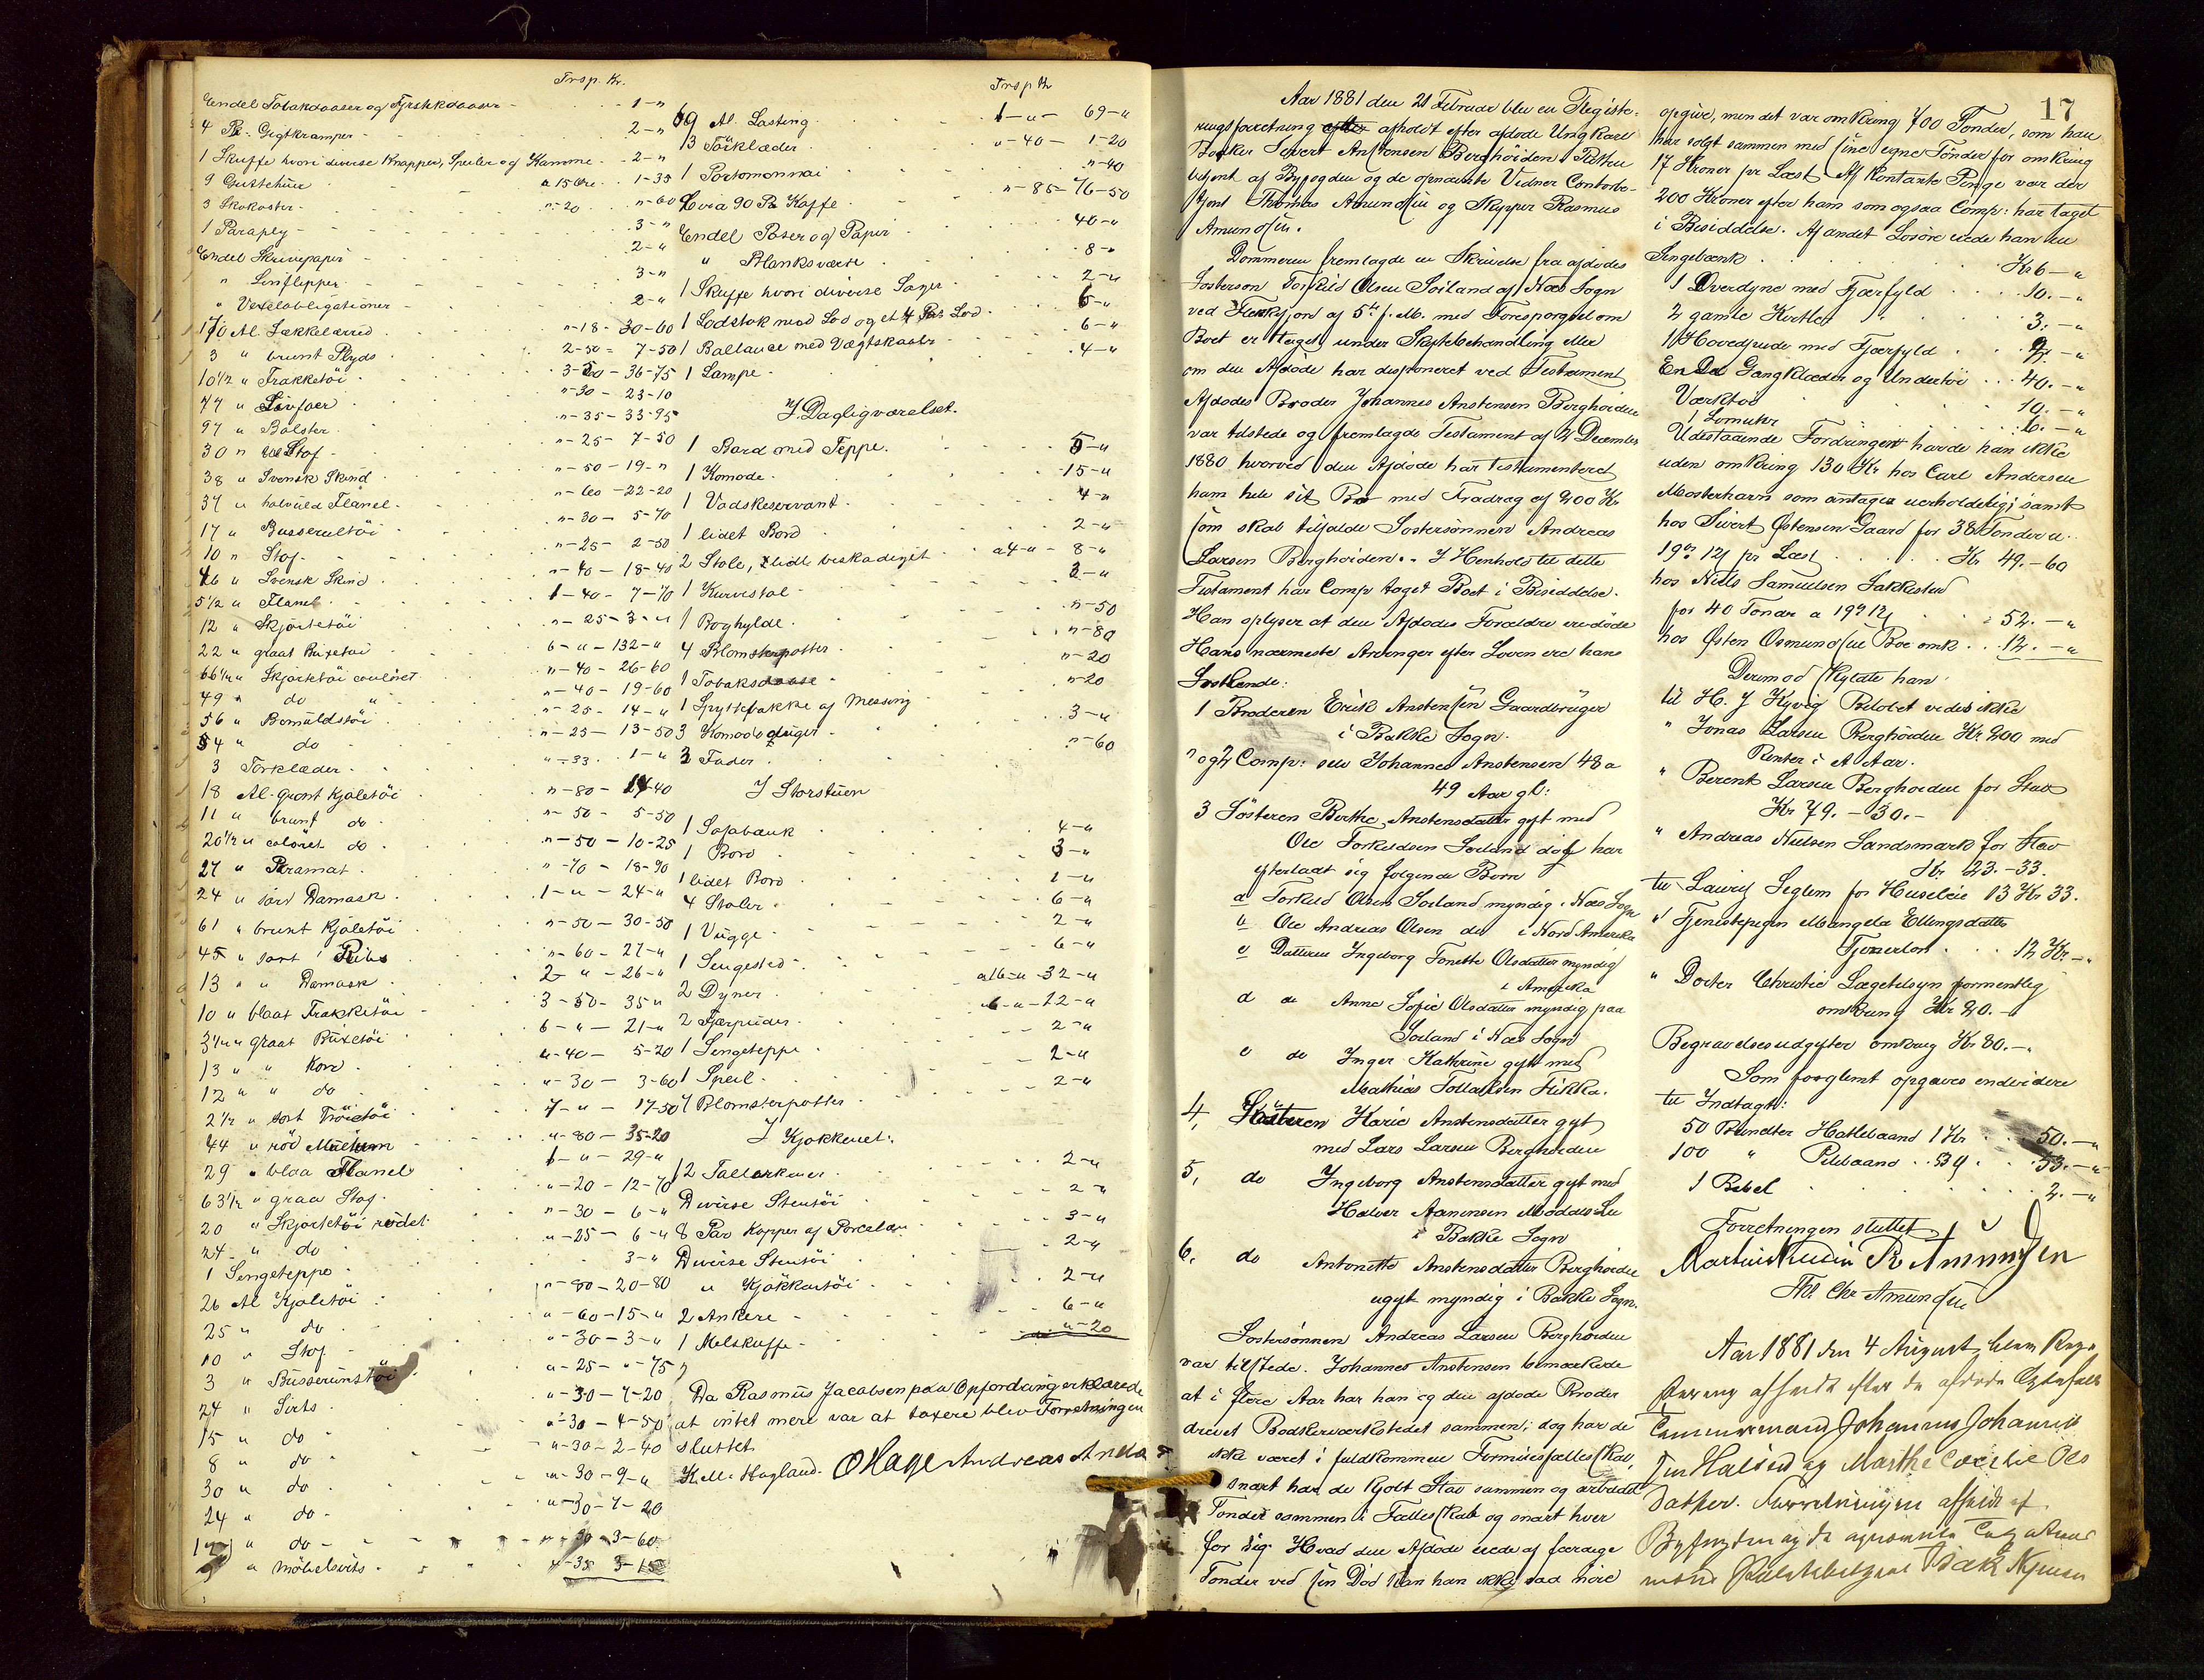 Trsp. Kr.
Endel Tobakdaaser og Fyrstikdaaser - 1-"
4 Pk. Gigtkramper - 2-"
1 Skuffe hvori diverse Knapper, Speiler og Kamme - 2-"
9 a 15 Øre 1-35
3 Skokoster - "-20 "-60
1 Paraply - 3-"
Endel Skrivepapir - 2-"
" Linflipper - 3-"
" Vexelobligationer - 2-"
170 Al. Lækkelærred "-18- 30-60
3 " brunt Plyds 2-50- 7-50
10 1/2 " Frakketöi 3-50-36-75
77 " "-30-23-10
97 " Bolster "-35-33-95
30 " Stof "-25-7-50
38 " Svensk Skind "-50-19-"
37 " halvuld Flanel "-60-22-20
17 " Busseroltöi "-30-5-10
10 " Stof "-25-2-50
46 " Svensk Skind "-40-18-40
5 1/2 " Flanel 1-40-7-70
12 " Skjortetöi "-25-3-"
22 " graat Buxetöi 6-"-132-"
66 1/2 " Skjortetöi couleuret "-40-26-60
49 " do " "-40-19-60
56 " Bomuldstöi "-25-14-"
54 " do "-25-13-50
3 Törklæder "-33 1-"
18 Al. grönt Kjoletöi "-80-14-40
11 " brunt do "-50-5-50
20 1/2 " colöret do "-50-10-25
27 " Paramat "-70-18-90
24 " sort Damask 1-"-24-"
61 " brunt Kjoletöi "-50-30-50
45 " sort Ribs "-60-27-"
13 " " Damask 2-"-26-"
10 " blaat Frakketöi 3-50-35"
3 1/2 " graat Buxetöi 6-"-21-"
13 " " Kord "-40-5-20
12 " " do "-30-3-60
2 1/2 " sort Tröietöi 7-"-17-50
44 " röd "-80-35-20
29 " blaa Flanel 1-"-29-"
63 1/2 " graa Stof "-20-12-70
20 " Skjortetöi rödet "-30-6-"
24 " do "-25-6-"
1 Sengeteppe 3-"
26 Al. Kjoletöi "-80-20-80
25 " do "-60-15-"
10 " Stof "-30-3-"
3 " Busserunstöi "-25-"-75
24 " Sirts "-30-7-20
15 " do "-30-4-50
8 " do "-30-2-40
30 " do "-30-9-"
24 " do "-30-7-20
12 " do "-30-3-60
" Möbelsirts "-35 3-15
Trsp Kr
69 Al. Lasting 1-"- 69-"
3 Törklæder "-40- 1-20
1 Portomonnai "-40
Circa 90 Pk Kaffe "-85-76-50
Endel Poser og Papir 40-"
" Blanksværte 8-"
1 Skuffe hvori diverse Sager 2-"
1 Lodstok med Lod og et 4 Pks Lod 6-"
1 Ballance med Vægtskaaler 6-"
1 Lampe 4-"
I Dagligværelset.
1 Bord med Teppe 5-"
1 Komode 15-"
1 Vadskeservant 4-"
1 lidet Bord 2-"
2 Stole, lidt beskadiget a 4-"- 8-"
1 Kurvestol 2-"
1 Boghylde "-50
4 Blomsterpotter "-80
1 Tobaksdaase "-20
1 Spyttebakke af Messing "-20
3 Komodeduger 3-"
3 Fader "-60
I Storstuen
1 Sofabænk 4-"
1 Bord 3-"
1 lidet Bord 1-"
4 Stoler 6-"
1 Vugge 2-"
1 Sengested 6-"
2 Dyner a 16-"-32-"
2 Fjærpuder 6-"-12-"
1 Sengeteppe 2-"
1 Speil 2-"
7 Blomsterpotter 2-"
I Kjøkkenet.
12 Tallerkener 2-"
Diverse Stentöi 2-"
8 Par Kopper af Porcelæn 3-"
Diverse Stentöi 2-"
" Kjökkentöi 2-"
2 Ankere 6-"
1 Melskuffe "-20
Da Rasmus Jacobsen paa Opfordring erklærede
at intet mere var at taxere blev Forretningen
sluttet.
K. M. Hagland. O Hage Andreas Anda
17
Aar 1881 den 21 Februar blev en Registe-
ringsforretning afholdt efter afdøde Ungkarl
Bøkker Sivert Anstensen Berghöiden. Retten
betjent af Byfogden og de opnævnte Vidner Contorbe-
tjent Thomas Amundsen og Skipper Rasmus
Amundsen.
Dommeren fremlagde en Skrivelse fra afdødes
Søstersøn Torkild Olsen Soiland af Næs Sogn
ved Flekkefjord af 5te f. M. med Forespørgsel om
Boet er taget under Skiftebehandling eller
om den Afdøde har disponeret ved Testament
Afdødes Broder Johannes Anstensen Berghøiden
var tilstede og fremlagde Testament af 2 December
1880 hvorved den Afdøde har testamenteret
ham hele sit Bo med Fradrag af 200 Kr
som skal tilfalde Søstersønnen Andreas
Larsen Berghøiden. I Henhold til dette
Testament har Comp taget Boet i Besiddelse.
Han oplyser at den Afdødes Forældre ere døde
Hans nærmeste Arvinger efter Loven ere hans
Søskende:
1 Broderen Erik Anstensen Gaardbruger
i Bakke Sogn.
" og 2 Comp: selv Johannes Anstensen 48 a
49 Aar gl:
3 Søsteren Berthe Anstensdatter gift med
Ole Torkeldsen Soeland død har
efterladt sig følgende Børn
a Torkild Olsen Soiland myndig i Næs Sogn
b Ole Andreas Olsen do i Nord Amerika
c Datteren Ingeborg Tonette Olsdatter myndig
i Amerika
d do Anne Sofie Olsdatter myndig paa
Soeland i Næs Sogn
e do Inger Kathrine gift med
Mathias Tollaksen Fikka.
4, Søsteren Karie Anstensdatter gift
med Lars Larsen Berghøiden
5, do Ingeborg Anstensdatter gift med
Halver Aanensen
i Bakke Sogn
6, do Antonette Anstensdatter Berghøiden
ugift myndig i Bakke Sogn.
Søstersønnen Andreas Larsen Berghøiden
var tilstede. Johannes Anstensen bemærkede
at i flere Aar har han og den afdøde Broder
drevet Bødkerværkstedet sammen; dog har de
ikke været i fuldkommen Formuesfællesskab,
snart har de kjøbt Stav sammen og arbeidet
Tønder sammen i Fællesskab og snart hver
for sig. Hvad den Afdøde eiede af færdige
Tønder ved sin Død kan han ikke saa nöie
opgive, men det var omkring 700 Tønder, som han
har solgt sammen med sine egne Tønder for omkring
17 Kroner pr Læst. Af Kontante Penge var der
200 Kroner efter ham som ogsaa Comp: har taget
i Besiddelse. Af andet Løsøre eiede han en
Sengebænk Kr 6-"
1 Overdyne med Fjærfyld 10.-"
2 gamle Kister 3.-"
1 Hovedpude med Fjærfyld 2.-"
En Del Gangklæder og Undertøi 40.-"
Værktøi 10.-"
1 6.-"
Udestaaende Fordringer havde han ikke
uden omkring 130 Kr hos Carl Andersen
Mosterhavn som antages uerholdelig; samt
hos Sivert Østensen Gaard for 38 Tønder a
pr Læst Kr 49.-60
hos Nills Samuelsen Sakkestad
for 40 Tønder a 52.-"
hos Østen Osmundsen Boe omk. 12.-"
Derimod skylder han
til H. J Kyvig Beløbet vides ikke
" Jonas Larsen Berghøiden Kr. 200 med
Renter i A Aar.
" Berent Larsen Berghøiden for Stav
Kr 79.-30.-
" Andreas Nielsen Sandsmark for Stav
Kr 23.-33.
til Lauritz Seglem for Husleie 13 Kr 33.
" Tjenestepigen Mangela Ellingsdatter
Tjenerløn 12 Kr -"
" Docter Christie Lægetilsyn formentlig
omkring Kr 20.-"
Begravelsesudgifter omkring Kr 80.-"
Som forglemt opgaves endvidere
til Indtægt:
50 Bundter Hasselbaand 1 Kr 50.-"
100 " Pilebaand 53.-"
1 Bibel 2.-"
Forretningen sluttet
R Amundsen
Th. Chr Amundsen
Aar 1881 den 4 August blev Regi-
strering afholdt efter de afdøde Egtefolk
Tømmermand Johannes Johannes-
sen Halsen og Marthe Cecilie Ols-
datter. Forretningen afholdt af
Byfogden og de opnævnte
mænd Politibetjent Isak